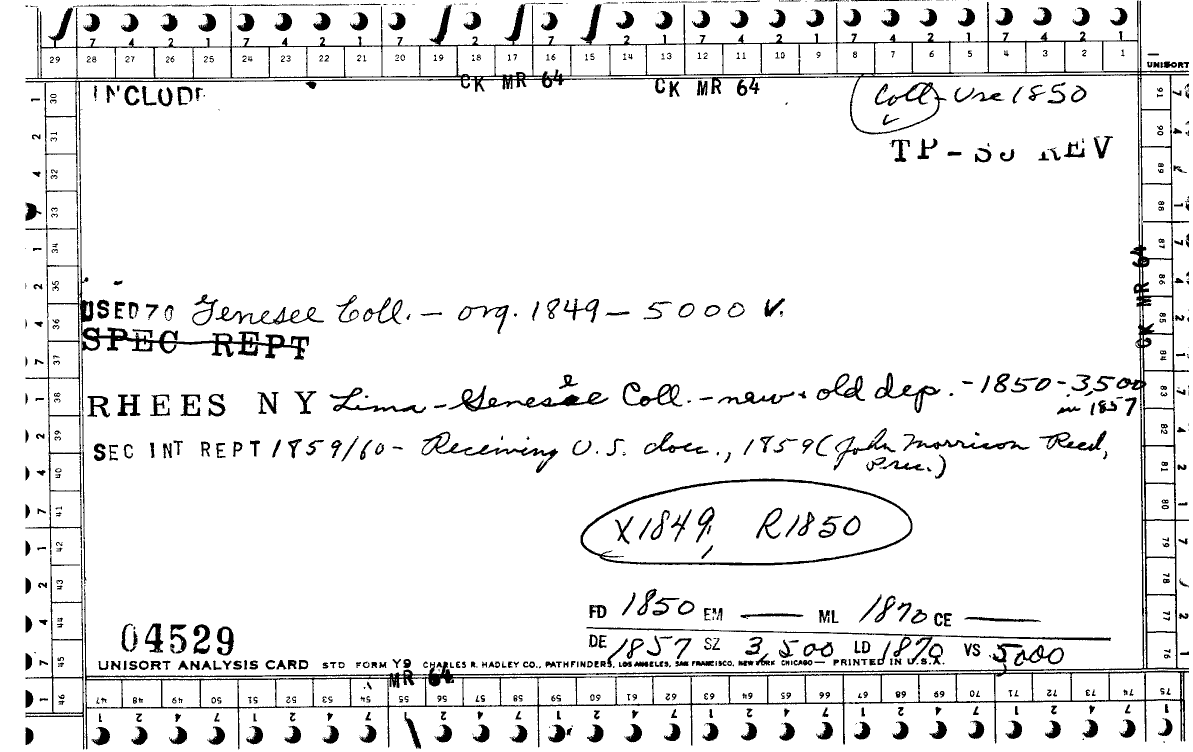 7 4 2 1 7 4 2 1 7 2 1 2 1 7 4 2 1 7 4 2 1
29 28 27 26 25 24 23 22 21 20 19 18 17 16 15 14 13 12 11 10 9 8 7 6 5 4 3 2 1
UNISORT
CK MR 64 CK MR 64
INCLUDE
Coll - Use 1850
TP - SJ REV
CK MR 64
USED 70 Genesee Coll. - org. 1849 - 5000 V.
SPEC REPT
RHEES N Y Lima - Genesee Coll. - new + old dep. - 1850 - 3,500
in 1857
SEC INT REPT 1859/60 - Receiving U.S. docs., 1859 (John Morrison Reed,
Pres.)
X1849, R1850
FD 1850 EM — ML 1870 CE —
DE 1857 SZ 3,500 LD 1870 VS 5000
04529
UNISORT ANALYSIS CARD STD FORM Y9 CHARLES R. HADLEY CO., PATHFINDERS, LOS ANGELES, SAN FRANCISCO, NEW YORK CHICAGO — PRINTED IN U.S.A.
MR 64
47 48 49 50 51 52 53 54 55 56 57 58 59 60 61 62 63 64 65 66 67 68 69 70 71 72 73 74 75